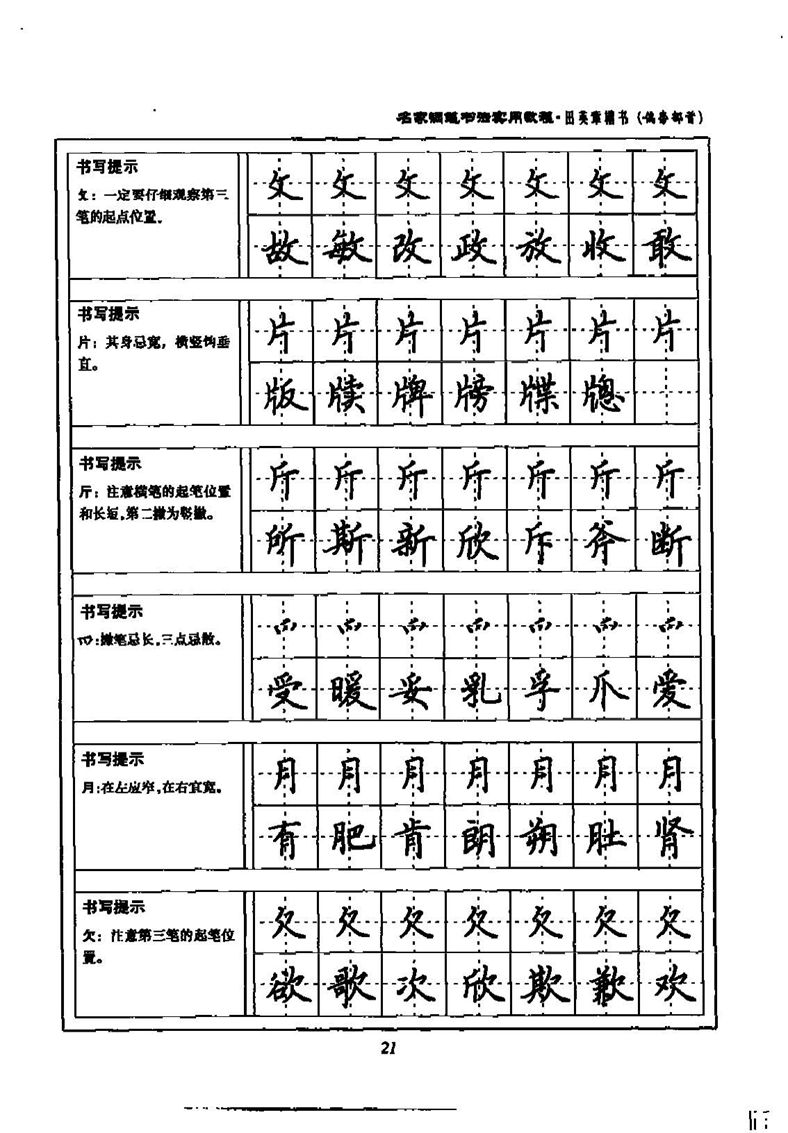 名家钢笔书法实用教程·田英章楷书（偏旁部首）
书写提示
攵：一定要仔细观察第三
笔的起点位置。
攵 攵 攵 攵 攵 攵 攵
故 敏 改 政 放 收 敢
书写提示
片：其身忌宽，横竖钩垂
直。
片 片 片 片 片 片 片
版 牍 牌 牓 牒 牎
书写提示
斤：注意横笔的起笔位置
和长短，第二撇为竖撇。
斤 斤 斤 斤 斤 斤 斤
所 斯 新 欣 斥 斧 断
书写提示
爫：撇笔忌长，三点忌散。
爫 爫 爫 爫 爫 爫 爫
受 暖 妥 乳 孚 爪 爱
书写提示
月：在左应窄，在右宜宽。
月 月 月 月 月 月 月
有 肥 肯 朗 朔 肚 肾
书写提示
欠：注意第三笔的起笔位
置。
欠 欠 欠 欠 欠 欠 欠
欲 歌 次 欣 欺 歉 欢
21